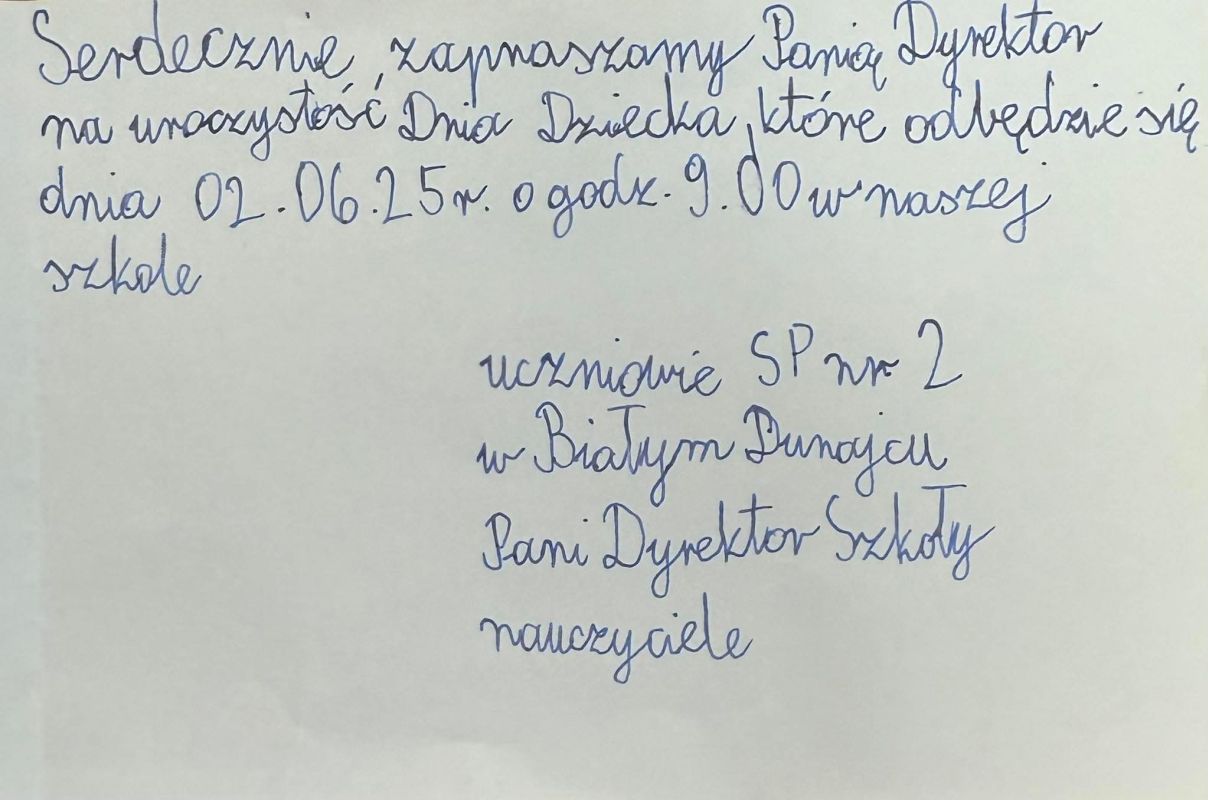 Serdecznie, zapraszamy Panią Dyrektor
na uroczystość Dnia Dziecka, które odbędzie się
dnia 02.06.25r. o godz. 9.00 w naszej
szkole
uczniowie SP nr 2
w Białym Dunajcu
Pani Dyrektor Szkoły
nauczyciele